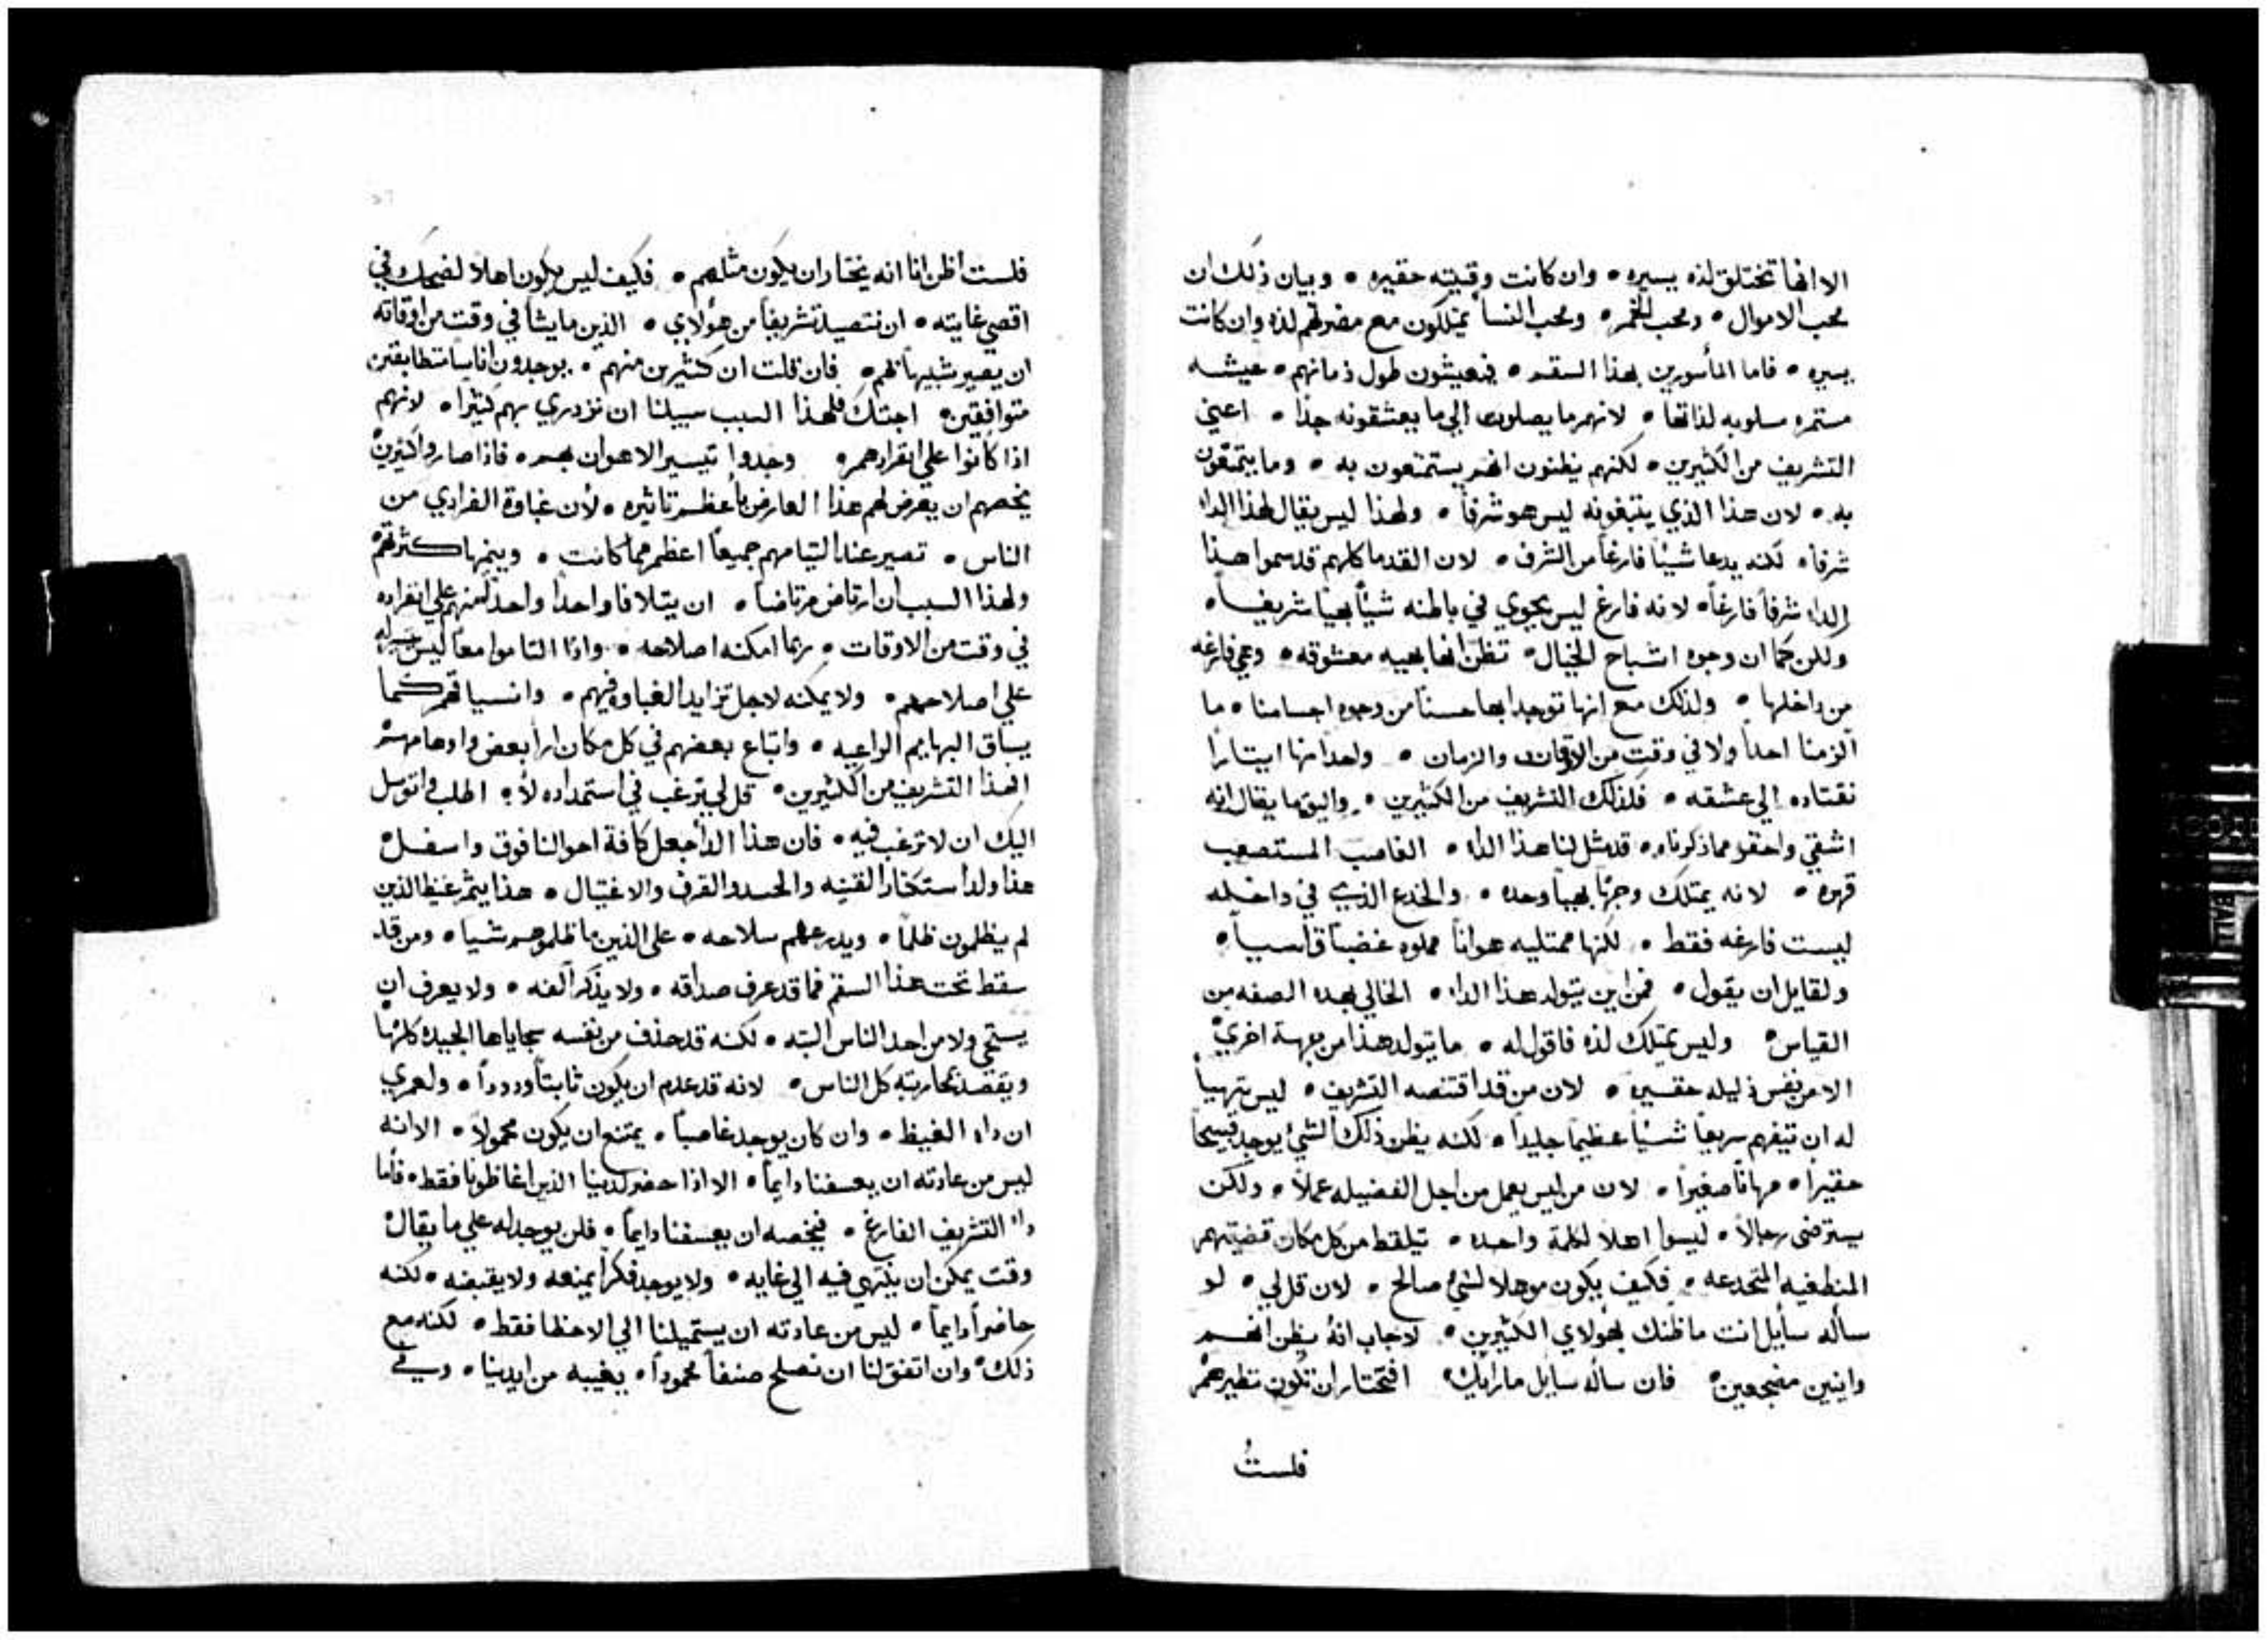 الا انها تختلق لذه يسيره • وان كانت وقيتيه حقيره • وبيان ذلك ان
محب الاموال • ومحب الخمر • ومحب النسا يمتلكون مع مضرتهم لذه وان كانت
يسيره • فاما المأسورين بهذا السقم • فيعيشون طول زمانهم • عيشه
مستمره مسلوبه لذاتها • لانهم ما يصلون الي ما يعشقونه جدا • اعني
التشريف من الكثيرين • لكنهم يظنون انهم يستمتعون به • وما يتمتعون
به • لان هذا الذي يتبغونه ليس هو شرفا • ولهذا ليس يقال لهذا الدا
شرفا • لكنه يدعا شيئا فارغا من الشرف • لان القدما كلهم قد سموا هذا
الدا شرفا فارغا • لانه فارغ ليس يحوي في باطنه شيئا بهيا شريفا •
ولكن كما ان وجوه اشباح الخيال • تظن انها بهيه معشوقه • وهي فارغه
من داخلها • ولذلك مع انها توجد ابها حسنا من وجوه اجسامنا • ما
الزمنا احدا ولا في وقت من الاوقات والزمان • واحدا منها ايتارا
نقتاده الي عشقه • فلذلك التشريف من الكثيرين • واليق ما يقال انه
اشقي واحقر مما ذكرناه • قد مثل لنا هذا الدا • الغاصب المستصعب
قهره • لانه يمتلك وجها بهيا وحده • والخدع الذي في داخله
ليست فارغه فقط • لكنها ممتليه هوانا مملوه غضبا قاسيا •
ولقايل ان يقول • فمن اين يتولد هذا الدا • الخالي بهذه الصفه من
القياس • وليس يمتلك لذه فاقول له • ما يتولد هذا من جهة اخري
الا من نفس ذليله حقيره • لان من قد اقتنصه التشريف • ليس يتهيا
له ان يتفهم سريعا شيئا عظيما جليدا • لكنه يظن ذلك الشي يوجد قبيحا
حقيرا • مهانا صغيرا • لان من ليس يعمل من اجل الفضيله عملا • ولكن
يسترضي رجالا • ليسوا اهلا لكلمة واحده • تيلقط من كل مكان قضيتهم
المنطغيه المتخدعه • فكيف يكون موهلا لشي صالح • لان قل لي • لو
سأله سايل انت ما ظنك بهولاي الكثيرين • لاجاب انه يظن انهم
وانيين مضجعين • فان سأله سايل ما رايك • افتختار ان تكون نظيرهم
فلستُ
فلست اظن انا انه يختار ان يكون مثلهم • فكيف ليس يكون اهلا لضحك في
اقصي غايته • ان نتصيد تشريفا من هولاي • الذين ما يشا في وقت من اوقاته
ان يصير شبيها لهم • فان قلت ان كثيرين منهم • يوجدون اناسا متطابقين
متوافقين • اجبتك فلهذا السبب سبيلنا ان نزدري بهم كثيرا • لانهم
اذا كانوا علي انفرادهم • وجدوا تيسير الاعوان بهم • فاذا صاروا كثيرين
يخصهم ان يعرض لهم هذا العارض باعظم تاثيره • لان غباوة الفرادي من
الناس • تصير عند التيامهم جميعا اعظم مما كانت • وينميها كثرتهم
ولهذا السبب ان ارتاض مرتاضا • ان يتلافا واحدا واحدا منهم علي انفراده
في وقت من الاوقات • ربما امكنه اصلاحه • واذا التاموا معا ليس
علي اصلاحهم • ولا يمكنه لاجل تزايد الغباوه فيهم • وانسياقهم كما
يساق البهايم الراعيه • واتباع بعضهم في كل مكان ارا بعض واوهامهم
الهذا التشريف من الكثيرين • قل لي يترغب في استمداده لا • اطلب واتوسل
اليك ان لا ترغب فيه • فان هذا الدا جعل كافة احوالنا فوق واسفل
هذا ولد استكثار القنيه والحسد والقرف والاغتيال • هذا يثمر غيظا الذين
لم يظلمون ظلما • ويدرعهم سلاحه • علي الذين ما ظلموهم شيا • ومن قد
سقط تحت هذا السقم فما قد عرف صداقه • ولا يذكر الفه • ولا يعرف ان
يستحي ولا من احد الناس البته • لكنه قد حذف من نفسه سجاياها الجيده كلها
ويقصد محاربته كل الناس • لانه قد عدم ان يكون ثابتا ودودا • ولعمري
ان دا الغيظ • وان كان يوجد غاصبا • يمتنع ان يكون محمولا • الا انه
ليس من عادته ان يعسفنا دايما • الا اذا حضر لدينا الذين اغاظونا فقط • فاما
دا التشريف الفارغ • فيخصه ان يعسفنا دايما • فلن يوجد له علي ما يقال
وقت يمكن ان ينتهي فيه الي غايه • ولا يوجد فكرا يمنعه ولا يقبضه • لكنه
حاضرا دايما • ليس من عادته ان يستميلنا الي الاخطا فقط • لكنه مع
ذلك • وان اتفق لنا ان نصلح صنفا محمودا • يغيبه من ايدينا • وفي